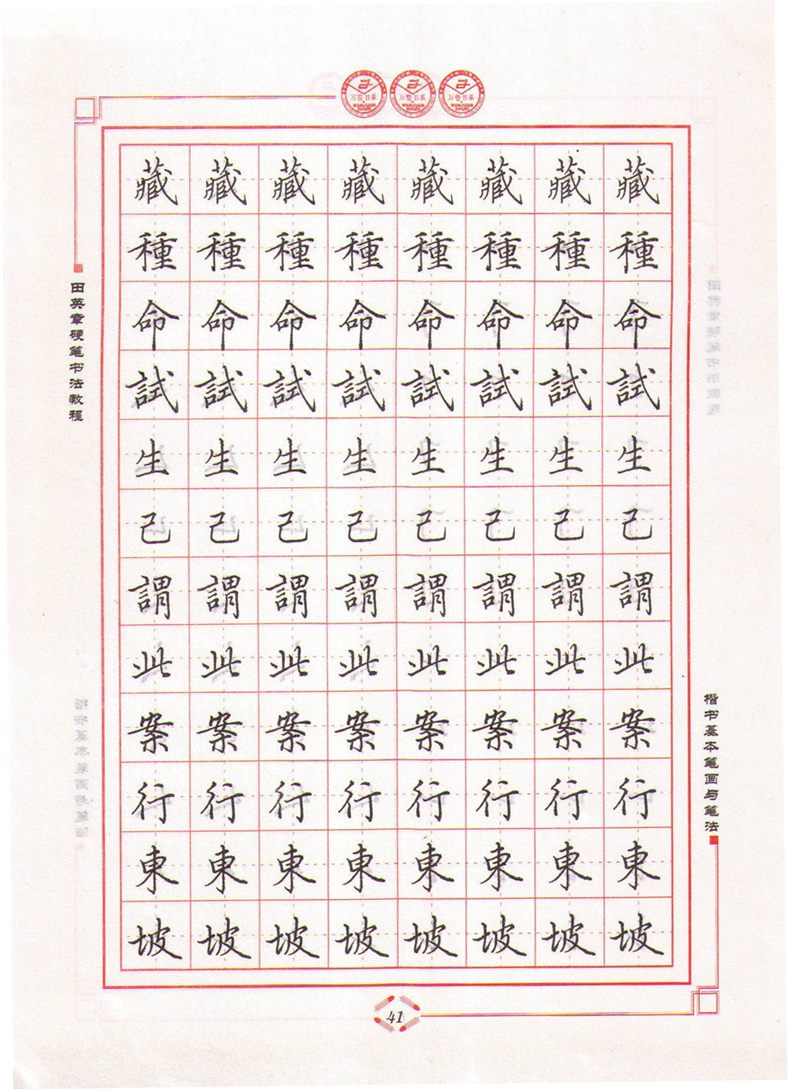 万卷书系 万卷书系 万卷书系
WANJUAN WANJUAN WANJUAN
SHUXI SHUXI SHUXI
田英章硬笔书法教程
藏藏藏藏藏藏藏藏
種種種種種種種種
命命命命命命命命
試試試試試試試試
生生生生生生生生
己己己己己己己己
謂謂謂謂謂謂謂謂
此此此此此此此此
案案案案案案案案
行行行行行行行行
東東東東東東東東
坡坡坡坡坡坡坡坡
楷书基本笔画与笔法
41